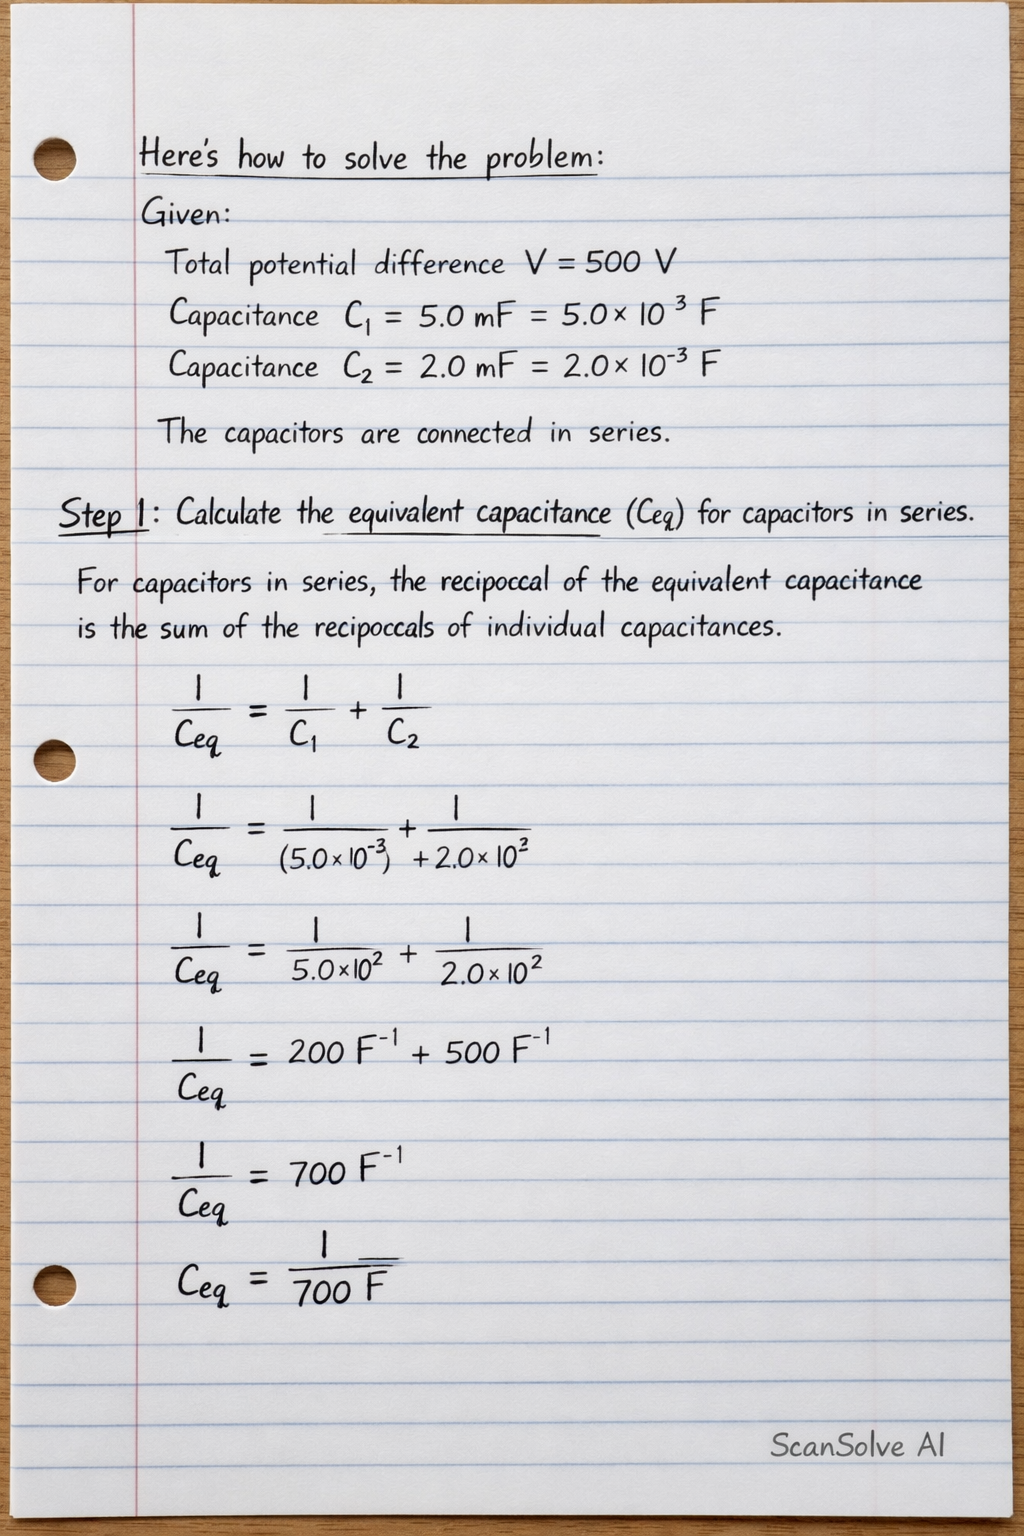 Here's how to solve the problem:
Given:
Total potential difference V = 500 V
Capacitance C₁ = 5.0 mF = 5.0 × 10 ³ F
Capacitance C₂ = 2.0 mF = 2.0 × 10⁻³ F
The capacitors are connected in series.
Step 1: Calculate the equivalent capacitance (Ceq) for capacitors in series.
For capacitors in series, the recipoccal of the equivalent capacitance
is the sum of the recipoccals of individual capacitances.
1/Ceq = 1/C₁ + 1/C₂
1/Ceq = 1/(5.0 × 10⁻³) + 1/+2.0 × 10²
1/Ceq = 1/5.0 × 10² + 1/2.0 × 10²
1/Ceq = 200 F⁻¹ + 500 F⁻¹
1/Ceq = 700 F⁻¹
Ceq = 1/700 F
ScanSolve AI